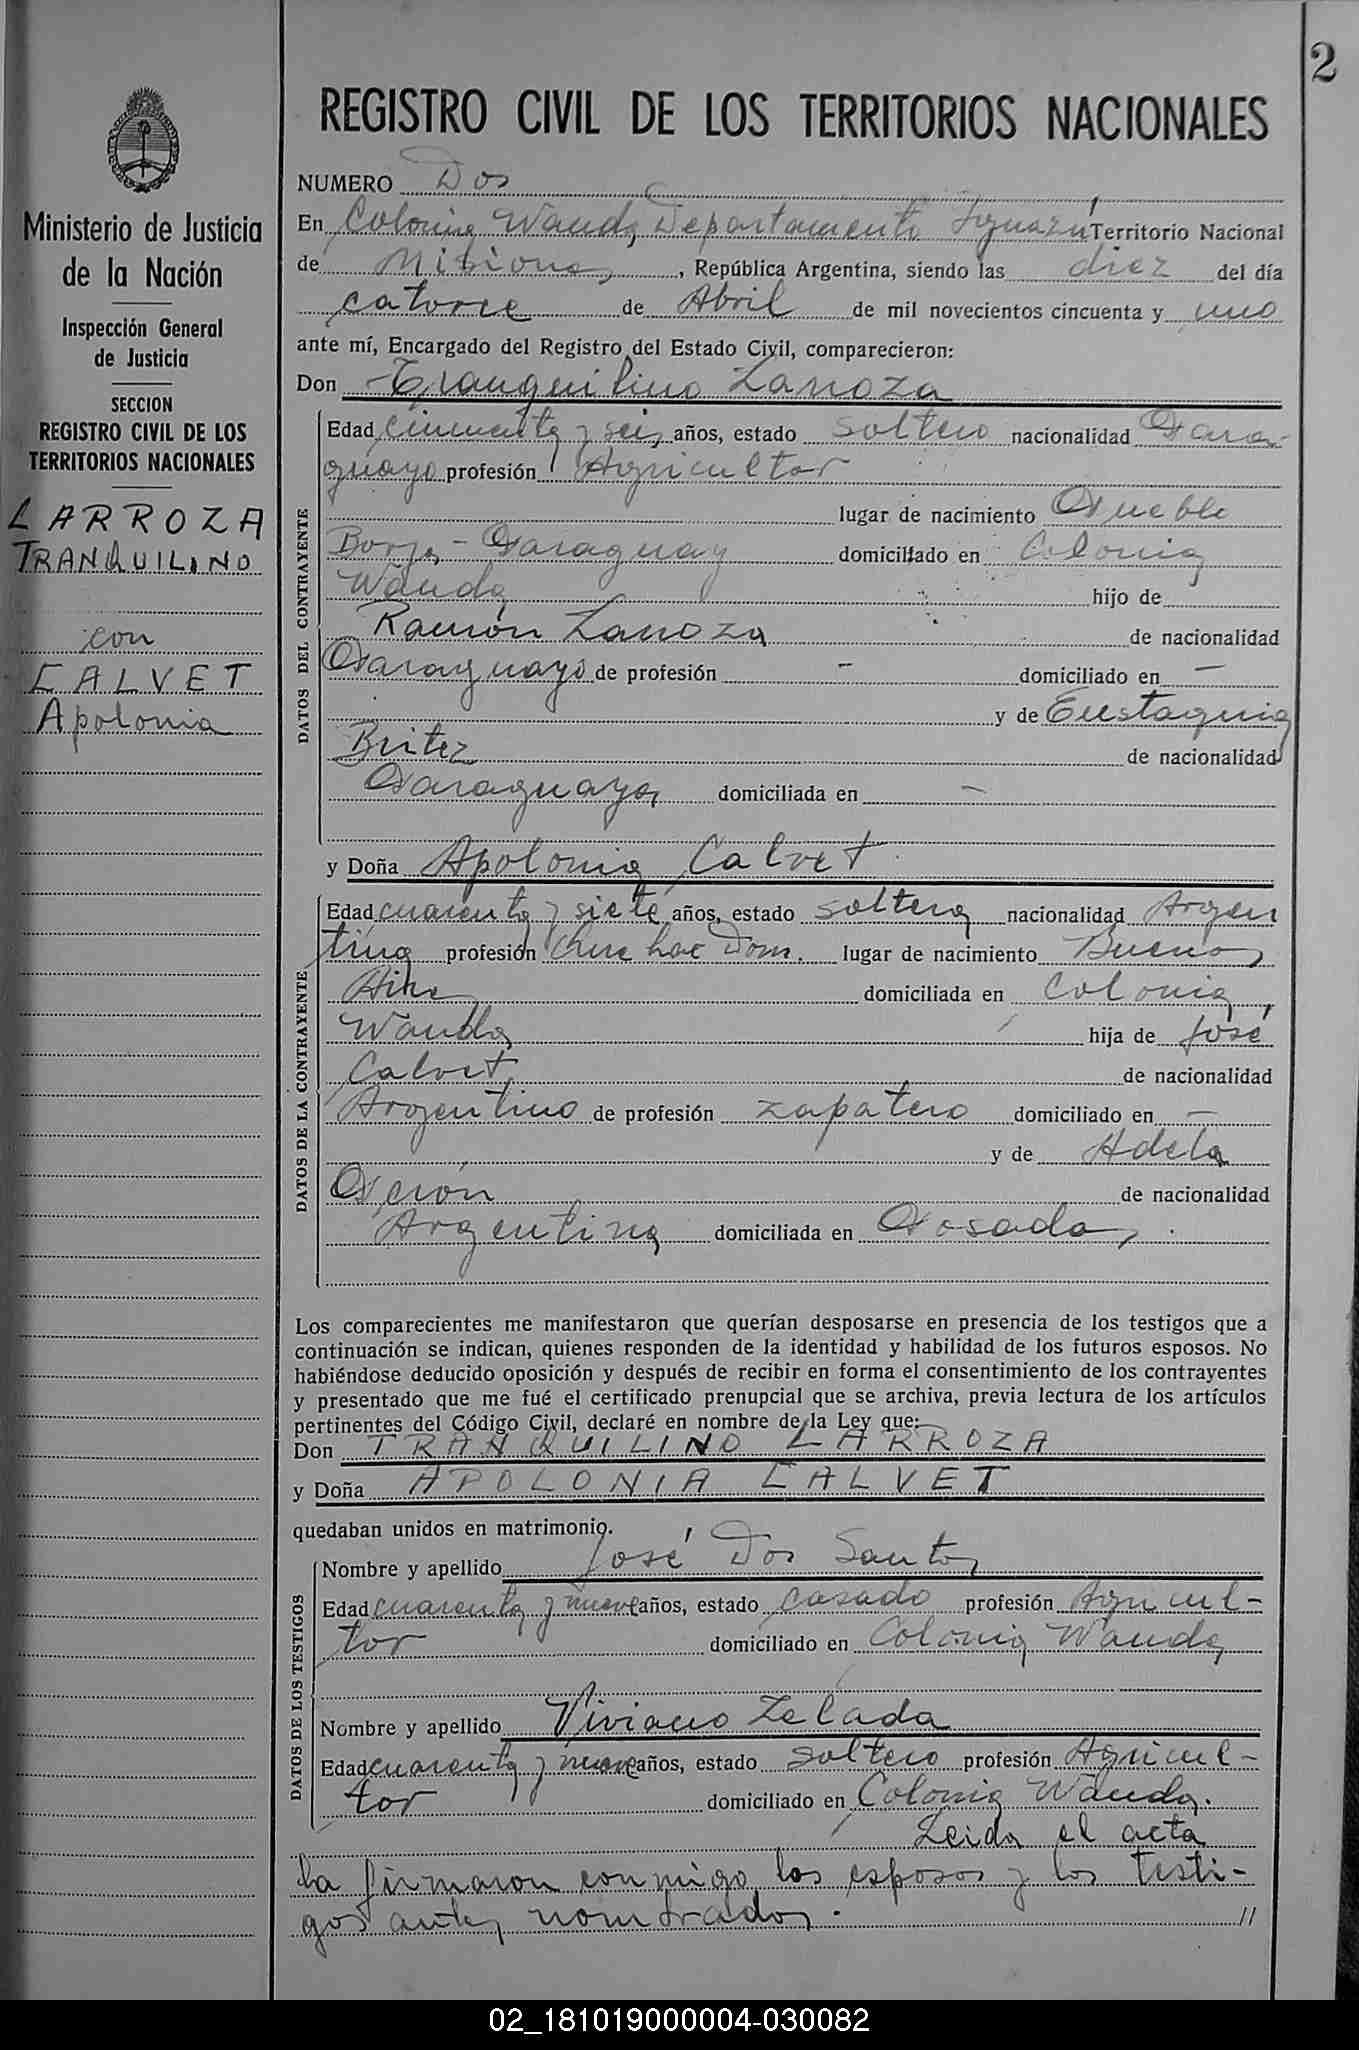 2
Ministerio de Justicia
de la Nación
Inspección General
de Justicia
SECCION
REGISTRO CIVIL DE LOS
TERRITORIOS NACIONALES
LARROZA
TRANQUILINO
con
CALVET
Apolonia
REGISTRO CIVIL DE LOS TERRITORIOS NACIONALES
NUMERO Dos
En Colonia Wanda, Departamento Iguazú Territorio Nacional
de Misiones, República Argentina, siendo las diez del día
catorce de Abril de mil novecientos cincuenta y uno
ante mí, Encargado del Registro del Estado Civil, comparecieron:
Don Tranquilino Larroza
DATOS DEL CONTRAYENTE
Edad cincuenta y seis años, estado soltero nacionalidad Para-
guayo profesión Agricultor
lugar de nacimiento Pueblo
Borja - Paraguay domiciliado en Colonia
Wanda hijo de
Ramón Larroza de nacionalidad
Paraguayo de profesión - domiciliado en -
y de Eustaquia
Britez de nacionalidad
Paraguaya domiciliada en -
y Doña Apolonia Calvet
DATOS DE LA CONTRAYENTE
Edad cuarenta y siete años, estado soltera nacionalidad Argen
tina profesión Que hac Dom. lugar de nacimiento Buenos
Aires domiciliada en Colonia
Wanda hija de José
Calvet de nacionalidad
Argentino de profesión zapatero domiciliado en -
y de Adela
de nacionalidad
Argentina domiciliada en Posadas
Los comparecientes me manifestaron que querían desposarse en presencia de los testigos que a
continuación se indican, quienes responden de la identidad y habilidad de los futuros esposos. No
habiéndose deducido oposición y después de recibir en forma el consentimiento de los contrayentes
y presentado que me fué el certificado prenupcial que se archiva, previa lectura de los artículos
pertinentes del Código Civil, declaré en nombre de la Ley que:
Don TRANQUILINO LARROZA
y Doña APOLONIA CALVET
quedaban unidos en matrimonio.
DATOS DE LOS TESTIGOS
Nombre y apellido José Dos Santos
Edad cuarenta y nueve años, estado casado profesión Agricul-
tor domiciliado en Colonia Wanda
Nombre y apellido Viviano Zelada
Edad cuarenta y nueve años, estado soltero profesión Agricul-
tor domiciliado en Colonia Wanda.
Leida el acta
la firmaron conmigo los esposos y los testi-
gos antes nombrados. //
02_181019000004-030082